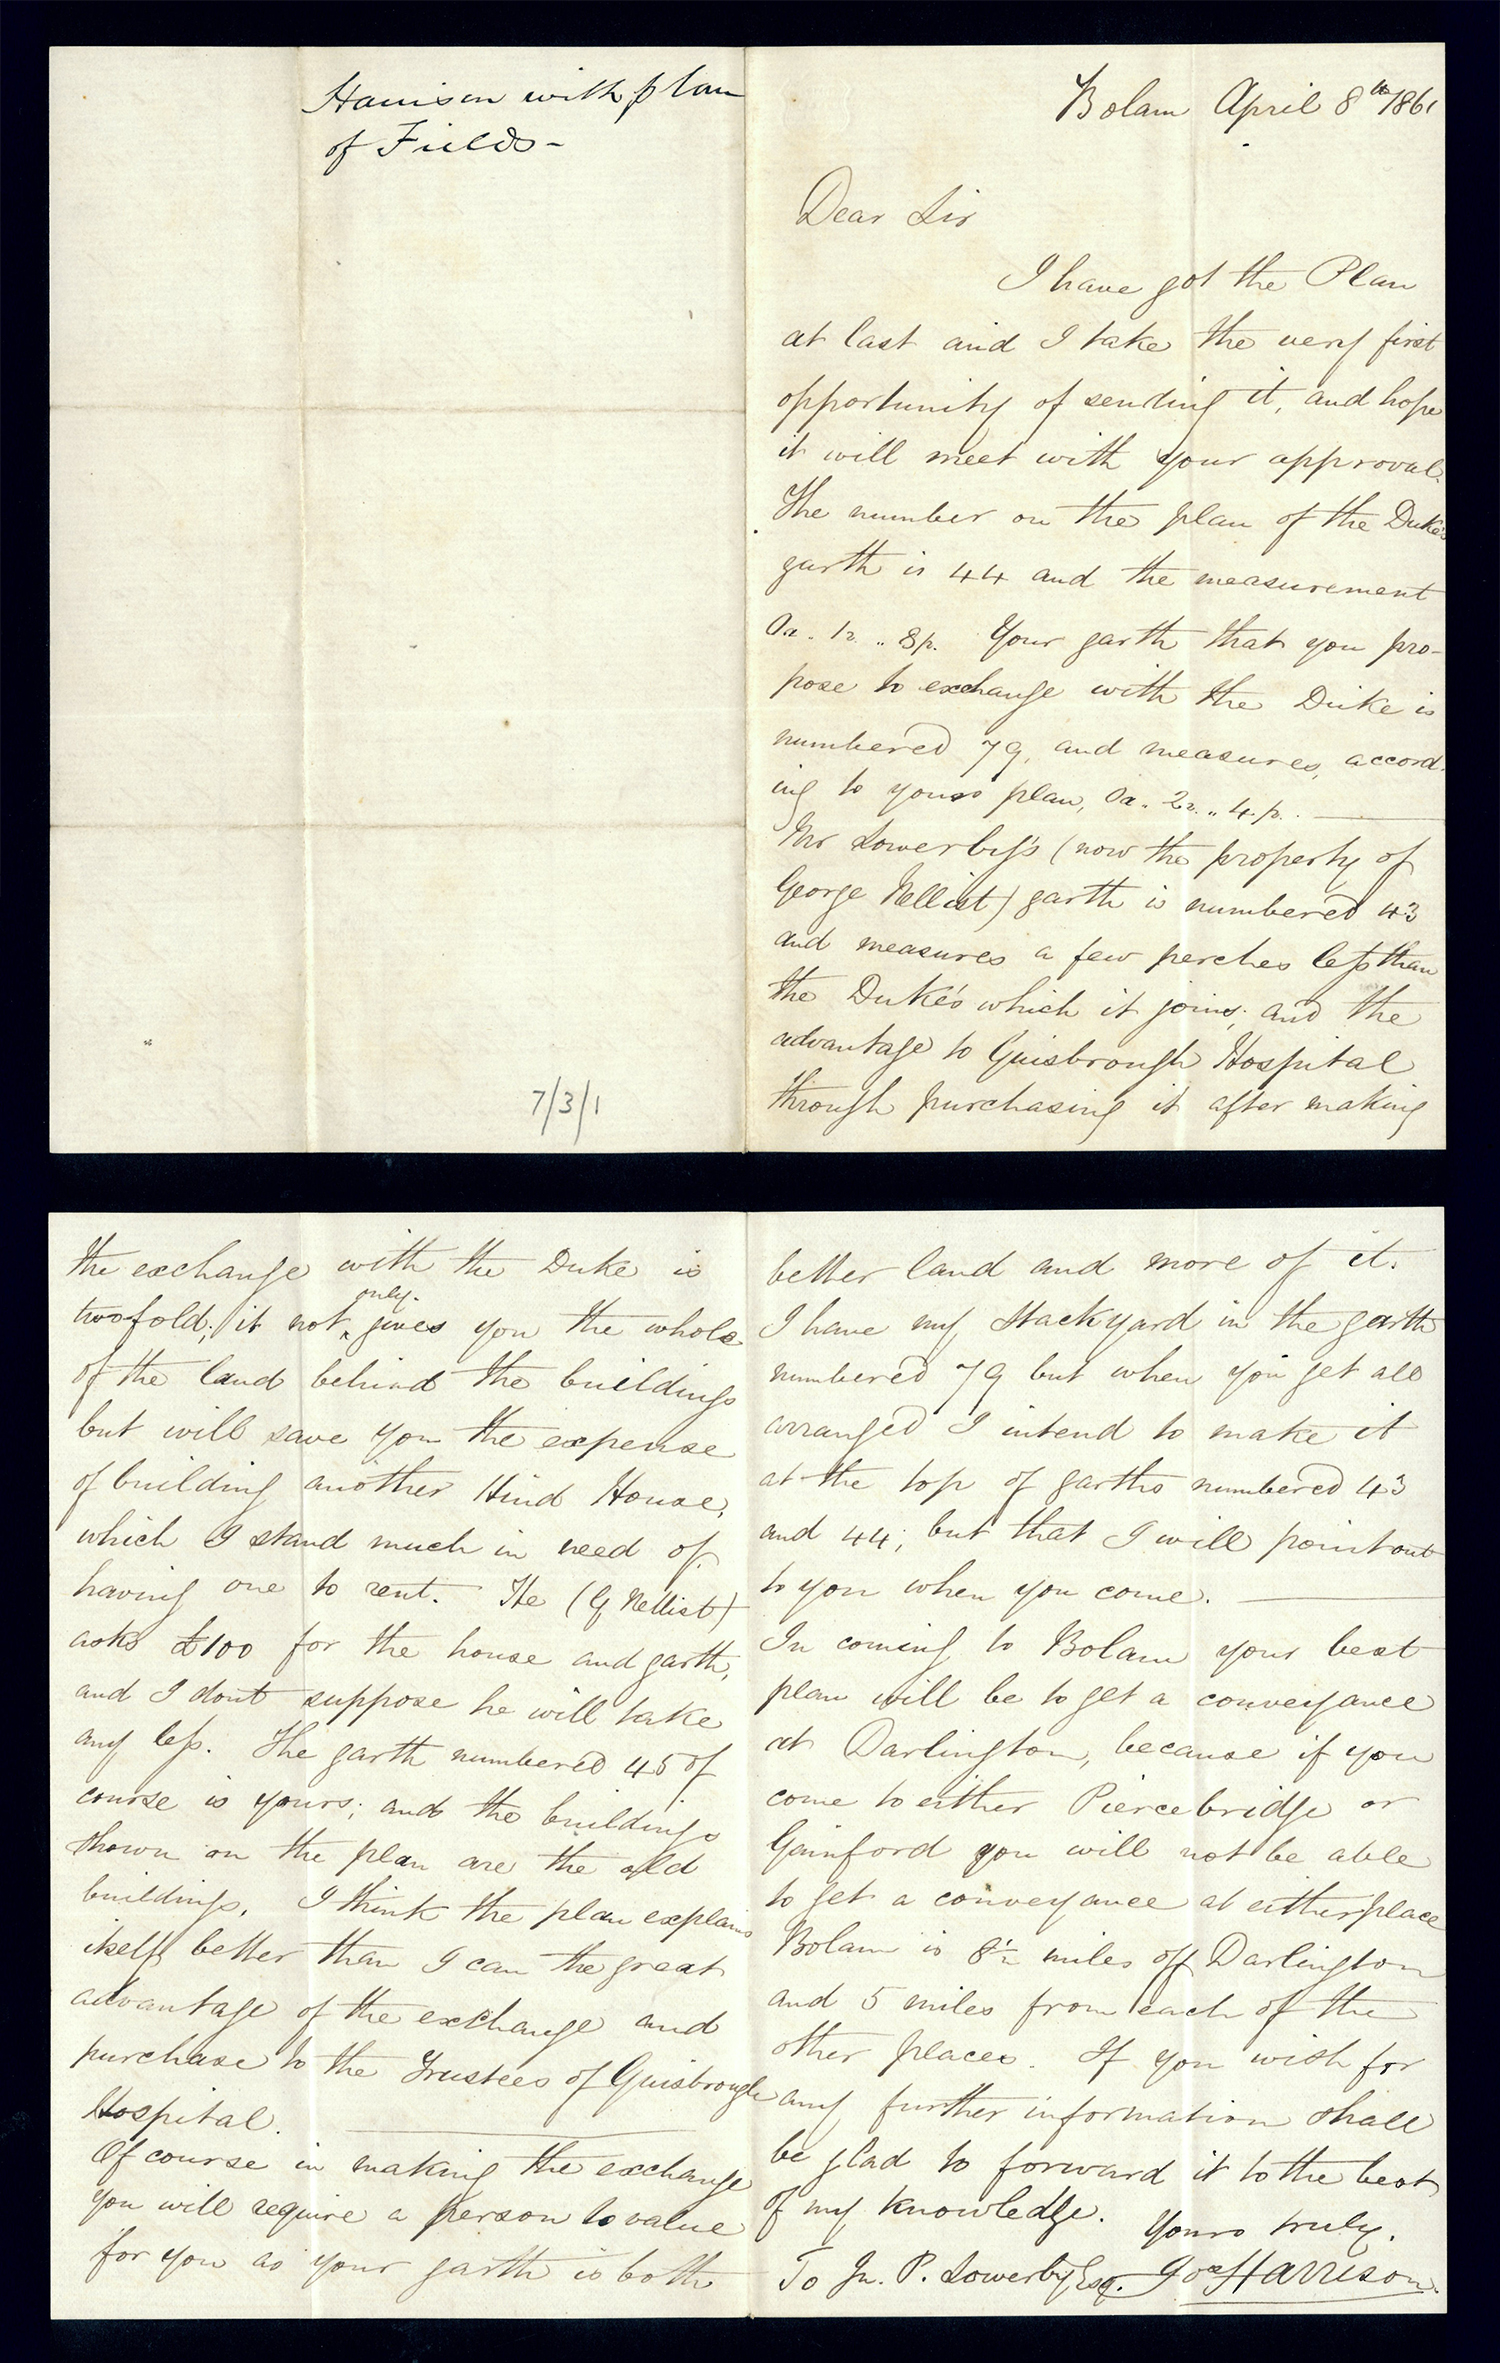 Harrison with plan
of Fields -
7/3/1
Bolam April 8th 1861
Dear Sir
I have got the Plan
at last and I take the very first
opportunity of sending it, and hope
it will meet with your approval.
The number on the plan of the Duke's
garth is 44 and the measurement
0a. 1r. .. 8p. Your garth that you pro-
pose to exchange with the Duke is
numbered 79, and measures, accord-
ing to your plan, 0a.. 2r. .. 4p. .
Mr Lowerby's (now the property of
George Nellist) garth is numbered 43
and measures a few perches less than
the Duke's which it joins; and the
advantage to Guisbrough Hospital
through purchasing it after making
the exchange with the Duke is
twofold; it not only gives you the whole
of the land behind the buildings
but will save you the expense
of building another Hind House,
which I stand much in need of
having one to rent. He (G Nellist)
asks £100 for the house and garth,
and I dont suppose he will take
any less. The garth numbered 45 of
course is yours; and the buildings
shown on the plan are the old
buildings. I think the plan explains
itself better than I can the great
advantage of the exchange and
purchase to the Trustees of Guisbrough
Hospital.
Of course in making the exchange
you will require a person to value
for you as your garth is both
better land and more of it.
I have my Stackyard in the garth
numbered 79 but when you get all
arranged I intend to make it
at the top of garths numbered 43
and 44; but that I will point out
to you when you come.
In coming to Bolam your best
plan will be to get a conveyance
at Darlington, because if you
come to either Piercebridge or
Gainford you will not be able
to get a conveyance at either place
Bolam is 8½ miles off Darlington
and 5 miles from each of the
other places. If you wish for
any further information shall
be glad to forward it to the best
of my knowledge. Yours truly.
To Jn. P. Lowerby Esq. Jos Harrison.